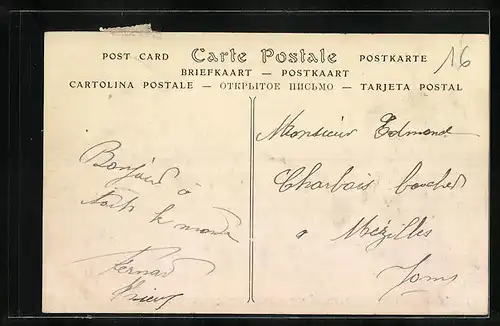 POST CARD Carte Postale POSTKARTE
BRIEFKAART — POSTKAART
CARTOLINA POSTALE — ОТКРЫТОЕ ПИСЬМО — TARJETA POSTAL
16
Bonjour à
tout le monde
Fernand
Monsieur Edmond
Charbois boucher
à Mézilles